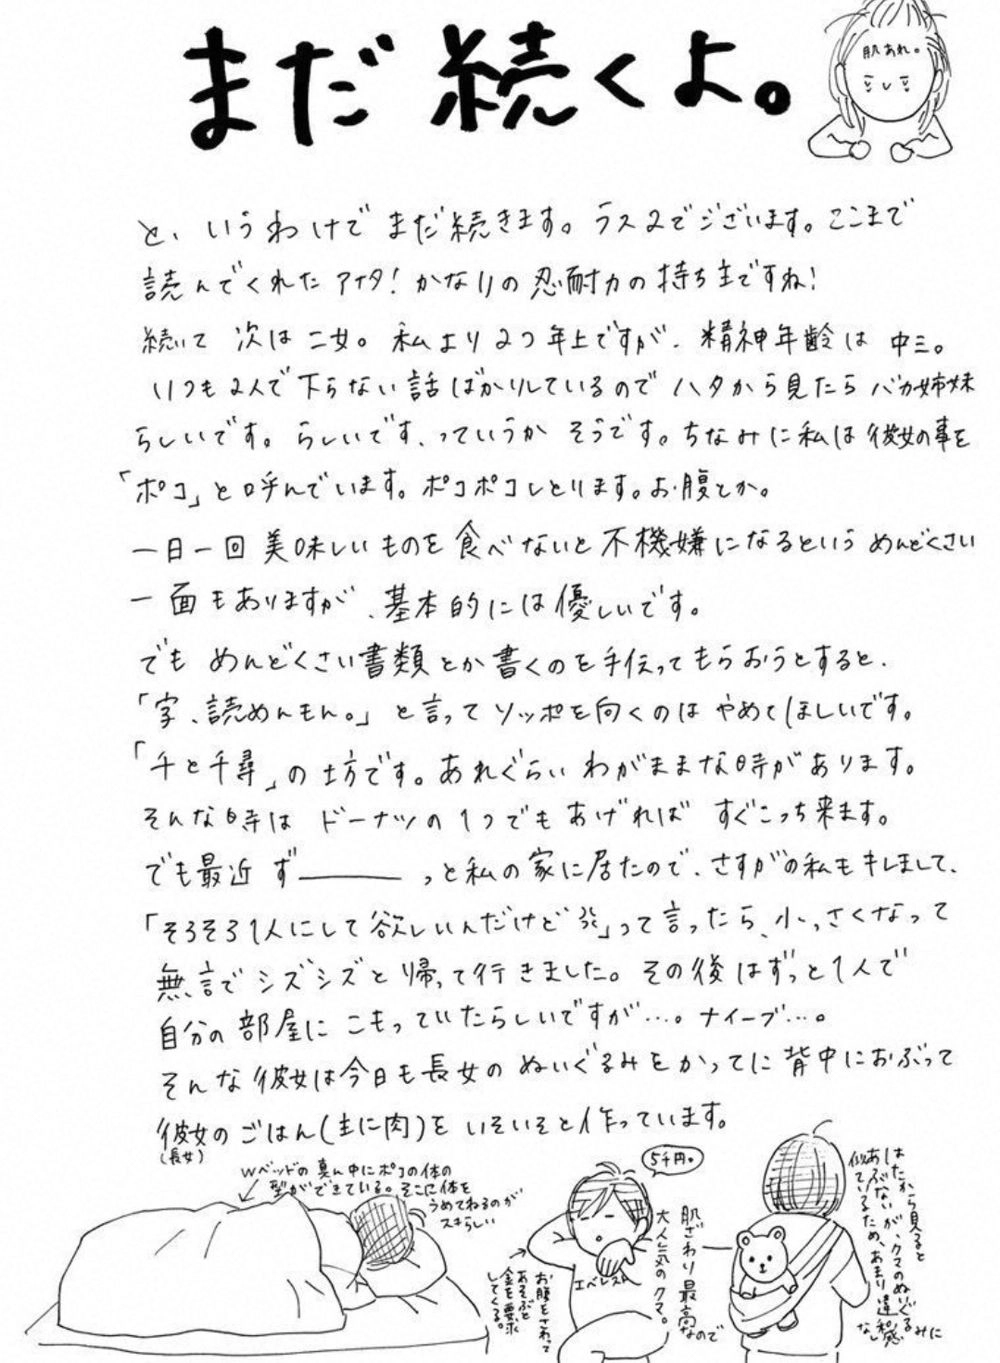 まだ続くよ。
肌あれ。
と、いうわけでまだ続きます。ラス2でございます。ここまで
読んでくれたアナタ!かなりの忍耐力の持ち主ですね!
続いて 次は二女。私より2つ年上ですが、精神年齢は中三。
いつも2人で下らない話ばかりしているのでハタから見たらバカ姉妹
らしいです。らしいです、っていうか そうです。ちなみに私は彼女の事を
「ポコ」と呼んでいます。ポコポコしとります。お腹とか。
一日一回 美味しいものを食べないと不機嫌になるというめんどくさい
一面もありますが、基本的には優しいです。
でも めんどくさい書類とか書くのを手伝ってもらおうとすると、
「字、読めんもん。」と言ってソッポを向くのはやめてほしいです。
「千と千尋」の坊です。あれぐらい わがままな時があります。
そんな時は ドーナツの1つでもあげれば すぐこっち来ます。
でも最近 ず――――っと私の家に居たので、さすがの私もキレまして、
「そろそろ1人にして欲しいんだけど」って言ったら、小っさくなって
無言でシズシズと帰って行きました。その後はずっと1人で
自分の部屋にこもっていたらしいですが…。ナイーブ…。
そんな彼女は今日も長女のぬいぐるみをかってに背中におぶって
彼女のごはん(主に肉)をいそいそと作っています。
(長女)
Wベッドの真ん中にポコの体の
型ができている。そこに体を
うめてねるのが
スキらしい
5千円。
エベレスト
お腹をさわって
あそぶと
金を要求
してくる。
肌ざわり最高なので
大人気のクマ。
はたから見ると
あぶないが、クマのぬいぐるみに
似ているため、あまり違和感
なし